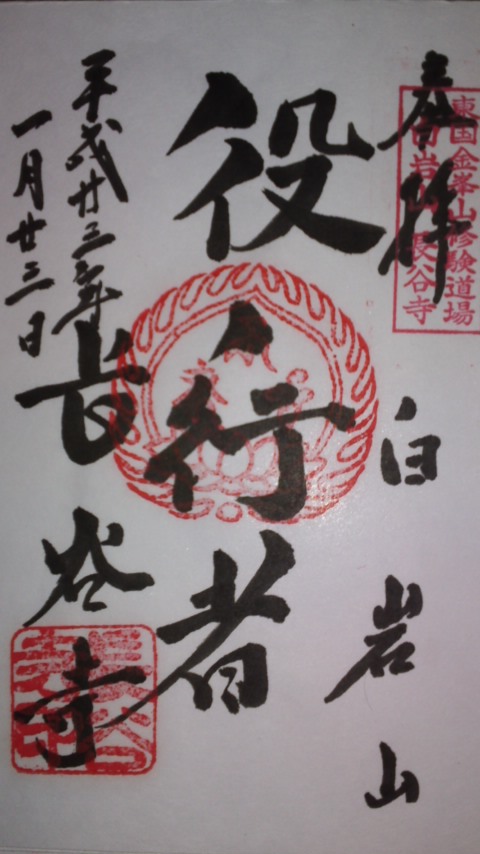 奉拝
白岩山
東国金峯山修験道場
白岩山長谷寺
役行者
長谷寺
平成廿三年
一月廿三日